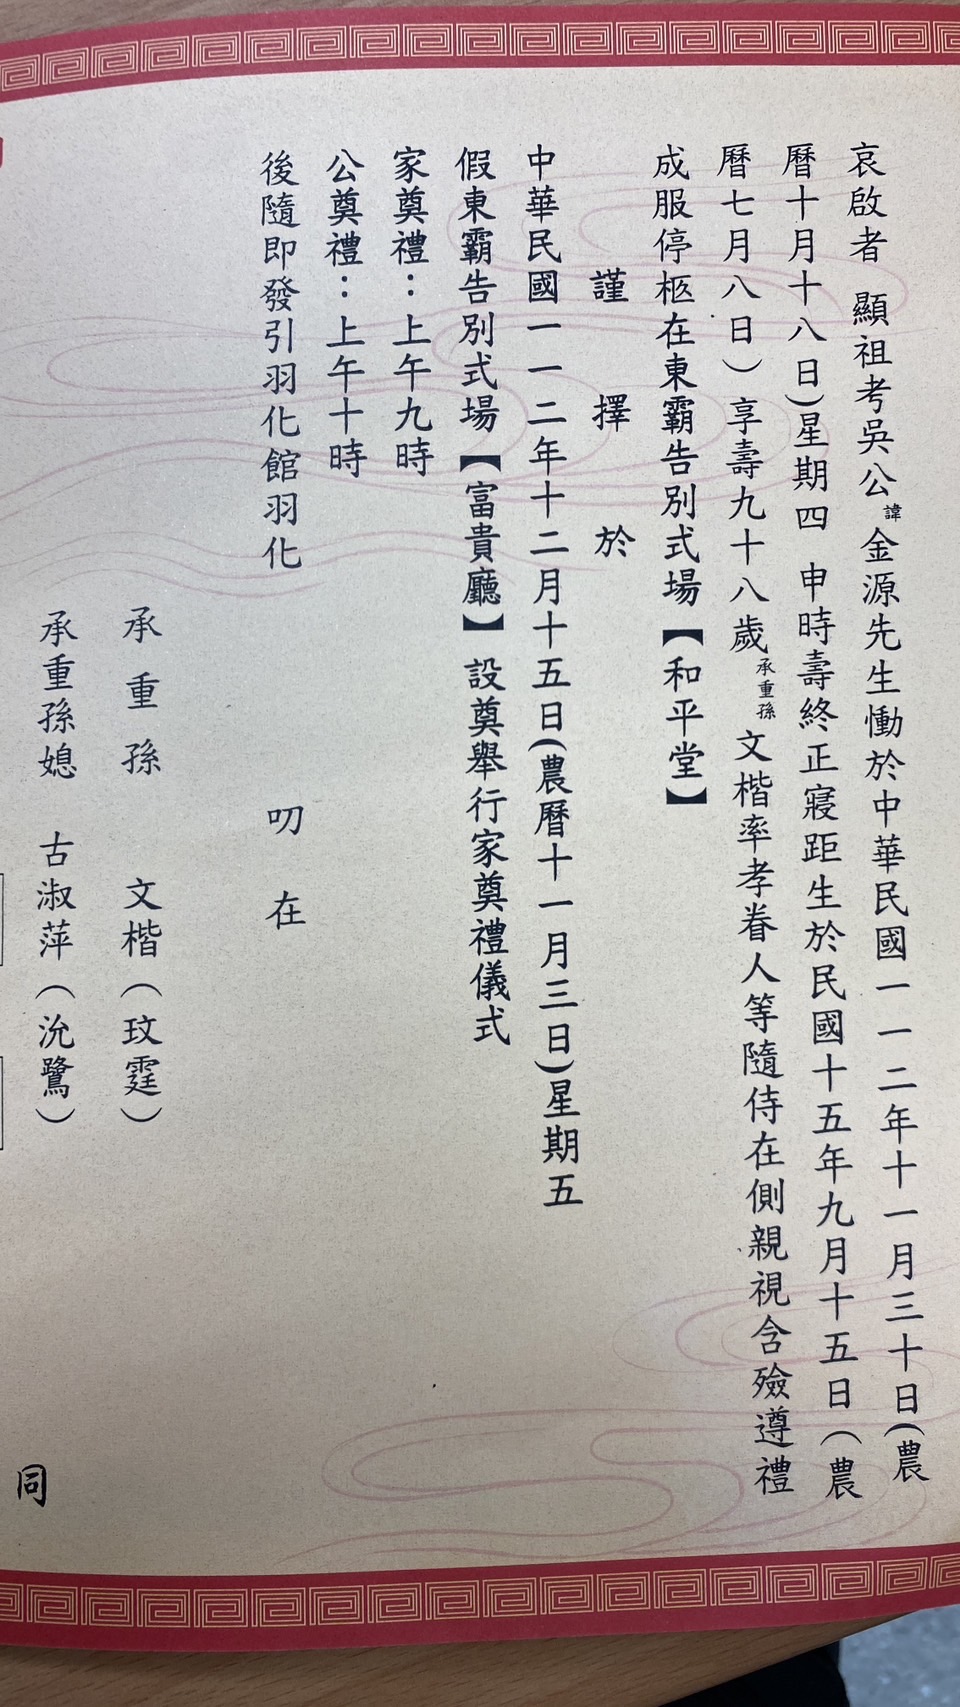 哀啟者 顯祖考吳公諱金源先生慟於中華民國一一二年十一月三十日(農
曆十月十八日)星期四 申時壽終正寢距生於民國十五年九月十五日(農
曆七月八日)享壽九十八歲承重孫文楷率孝眷人等隨侍在側親視含殮遵禮
成服停柩在東霸告別式場【和平堂】
謹擇於
中華民國一一二年十二月十五日(農曆十一月三日)星期五
假東霸告別式場【富貴廳】設奠舉行家奠禮儀式
家奠禮：上午九時
公奠禮：上午十時
後隨即發引羽化館羽化
叨在
承重孫 文楷(玟霆)
承重孫媳 古淑萍(沇鷺)
同